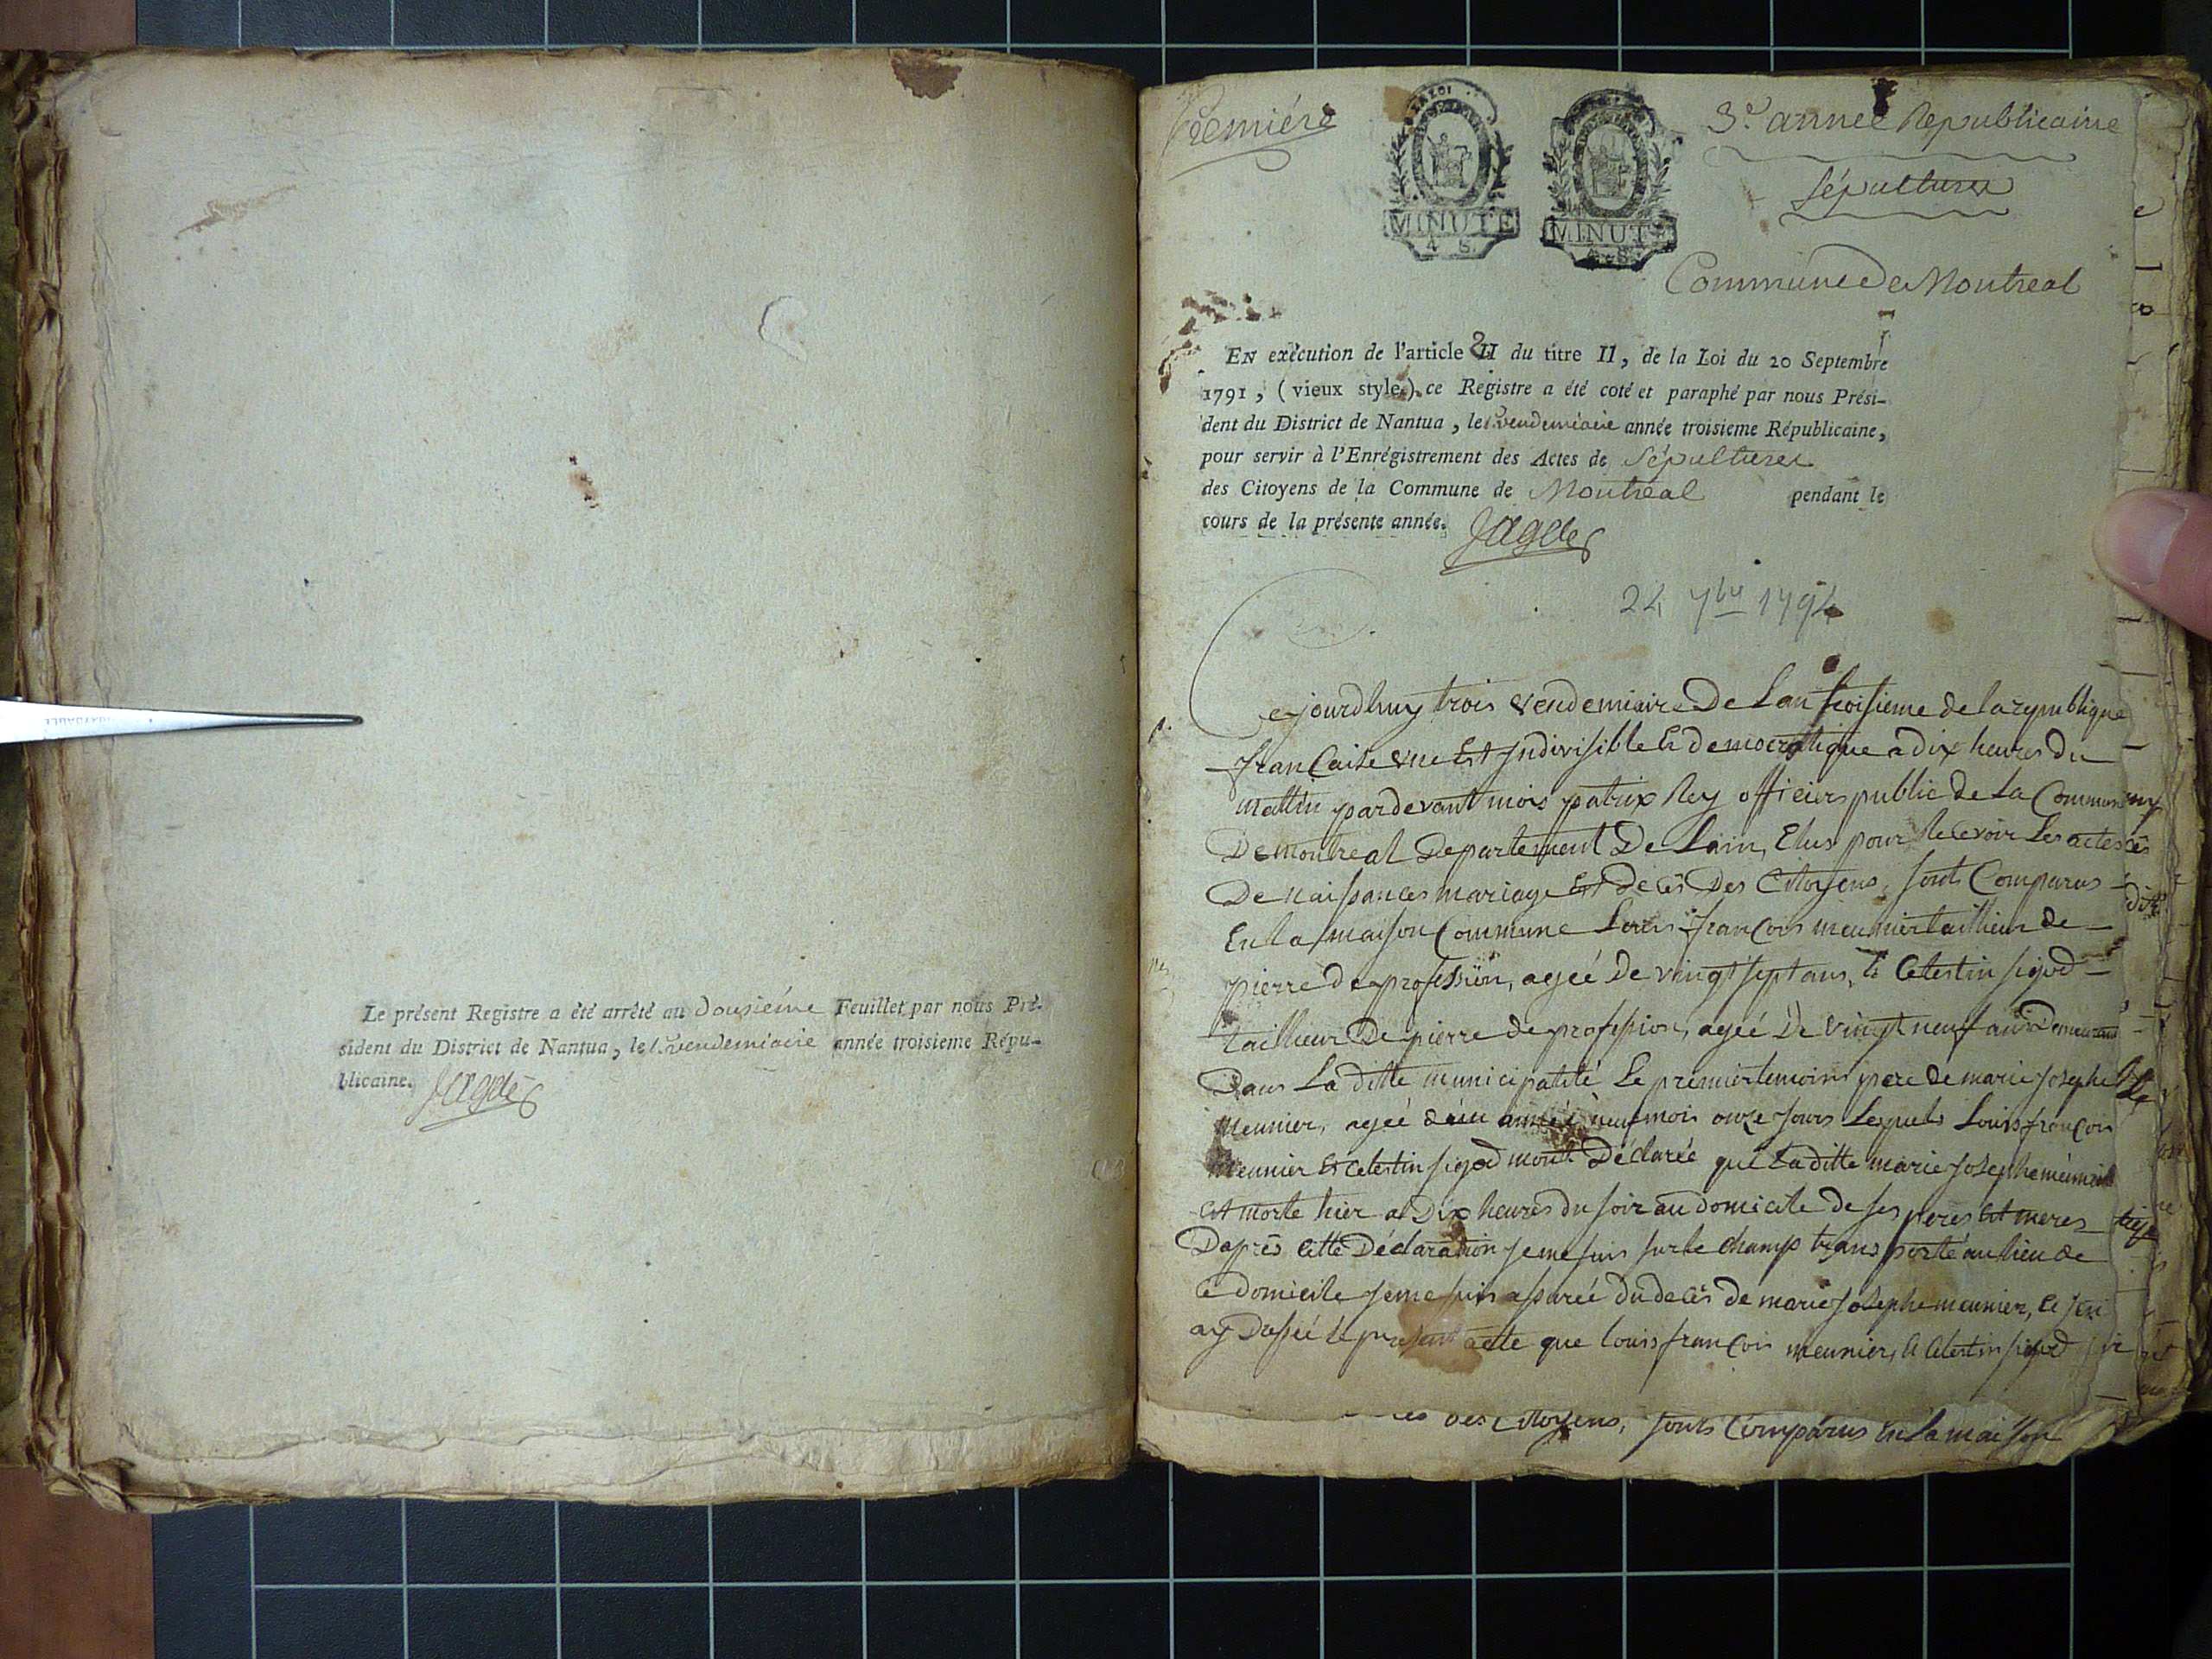 Le présent Registre a été arrêté au douzieme Feuillet par nous Pré-
sident du District de Nantua, le 1.er vendemiaire année troisieme Répu-
blicaine. Jagets
Premiére
LA LOI
MINUTE
4 S.
MINUTE
4 S.
3.e année Republicaine
Sépultures
Commune de Montreal
EN exécution de l'article II du titre II, de la Loi du 20 Septembre
1791, (vieux style) ce Registre a été coté et paraphé par nous Prési-
dent du District de Nantua, le 1.er vendemiaire année troisieme Républicaine,
pour servir à l'Enrégistrement des Actes de Sépultures
des Citoyens de la Commune de Montreal pendant le
cours de la présente année.
24 7bre 1794
Cejourdhuy trois vendemiaire De Lan troisieme de la republique
francaise une Et Indivisible Et democratique a dix heures du
mattin pardevant mois patrix Rey officiers public de La Commune
De montreal Departement De Lain, Elus pour Recevoir Les actes
De naissances mariage Et decès Des Citoyens, sont Comparus
En la maison Commune Louis francois meunier tailleur de
pierre de profession, agée De vingt sept ans, Et Celestin sigod
tailleur De pierre de profession, agée De vingt neuf ans Demeurant
Dans La ditte municipalité Le premier temoins pere de marie Josephe
meunier, agée dun année neuf mois onze Jours Lesquels Louis francois
meunier Et Celestin sigod mont Déclarée que Laditte marie Josephe meunier
Est morte hier a Dix heures du soir au domicile de ses peres Et meres
Daprès Cette Déclaration Je me suis sur le champ transporté au lieu de
ce domicile Je me suis assurée du decès de marie Josephe meunier, Et Jen
ay Dressée le present acte que Louis francois meunier, Et Celestin sigod
des Citoyens, sont Comparus En La maison